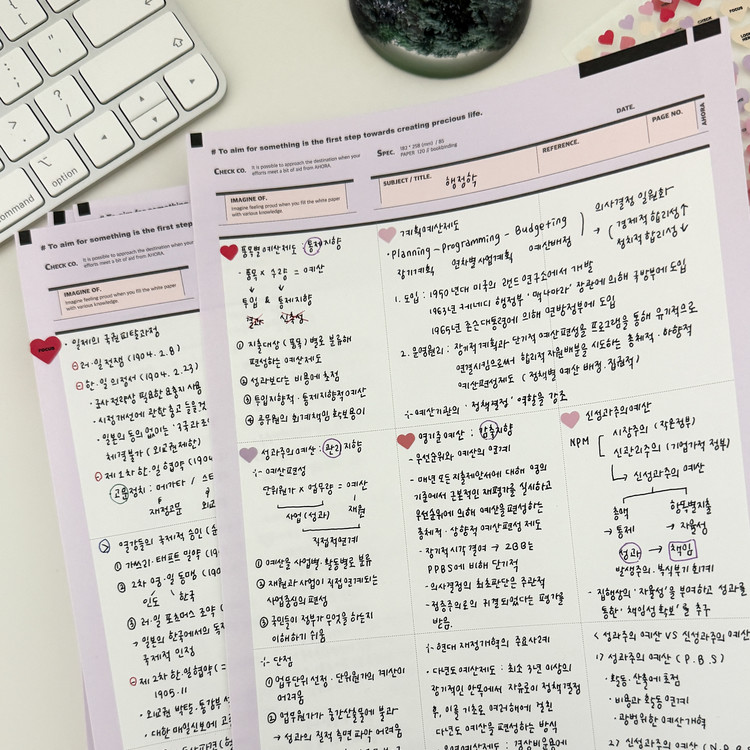 command
option
# To aim for something is the first step towards creating precious life.
CHECK CO.
It is possible to approach the destination when your
efforts meet a bit of aid from AHORA.
SPEC.
182 * 258 (mm) / 80
PAPER 120 // bookbinding
DATE.
PAGE NO.
AHORA
IMAGINE OF.
Imagine feeling proud when you fill the white paper
with various knowledge.
SUBJECT / TITLE.
행정학
REFERENCE.
품목별예산제도 : 통제지향
· 품목 × 수량 = 예산
투입 & 통제지향
① 지출대상 (품목) 별로 분류해
편성하는 예산제도
② 성과보다는 비용에 초점
③ 투입지향적·통제지향적예산
④ 공무원의 회계책임 확보용이
계획예산제도
· Planning - Programming - Budgeting
장기계획 연차별사업계획 예산배정
의사결정 일원화
→ (경제적 합리성↑
정치적 합리성↓
1. 도입 : 1950년대 미국의 랜드연구소에서 개발
1963년 케네디 행정부 '맥나마라' 장관에 의해 국방부에 도입
1965년 존슨대통령에 의해 연방정부에 도입
2. 운영원리 : 장기적계획과 단기적 예산편성을 프로그램을 통해 유기적으로
연결시킴으로써 합리적 자원배분을 시도하는 총체적·하향적
예산편성제도 (정책별 예산 배정·집권적)
⁖ 예산기관의 '정책결정' 역할을 강조
성과주의예산 : 관리지향
⁖ 예산편성
단위원가 × 업무량 = 예산
사업(성과) 재원
직접적연계
① 예산을 사업별·활동별로 분류
② 재원과 사업이 직접 연계되는
사업중심의 편성
③ 국민들이 정부가 무엇을 하는지
이해하기 쉬움
영기준예산 : 감축지향
- 우선순위와 예산의 연계
- 매년 모든 지출제안서에 대해 영의
기준에서 근본적인 재평가를 실시하고
우선순위에 의해 예산을 편성하는
총체적·상향적 예산편성 제도
- 장기적시각결여 → ZBB는
PPBS에 비해 단기적
- 의사결정의 최초판단은 주관적
- 점증주의로의 귀결되었다는 평가를
받음.
신성과주의예산
NPM
시장주의 (작은정부)
신관리주의 (기업가적 정부)
→ 신성과주의 예산
총액 항목별지출
→ 통제 → 자율성
성과 → 책임
발생주의·복식부기 회계
- 집행상의 '자율성'을 부여하고 성과를
통한 '책임성 확보'를 추구
⁖ 단점
① 업무단위 선정·단위원가의 계산이
어려움
② 업무원가가 중간산출에 불과
→ 성과의 질적 측면 파악 어려움
⁖ 현대 재정개혁의 주요사례
· 다년도예산제도 : 최소 3년 이상의
장기적인 안목에서 자유로이 정책결정
후, 이를 기초로 연계하에 걸친
다년도 예산을 편성하는 방식
< 성과주의 예산 VS 신성과주의 예산
1) 성과주의 예산 (P.B.S)
· 활동·산출에 초점
· 비용과 활동 연계
· 광범위한 예산개혁
2) 신성과주의 예산
# To aim for something is the first step
CHECK CO.
It is possible to approach the destination when your
efforts meet a bit of aid from AHORA.
IMAGINE OF.
Imagine feeling proud when you fill the white paper
with various knowledge.
FOCUS
· 일제의 국권피탈과정
⊖ 러·일전쟁 (1904.2.8)
⊖ 한·일 의정서 (1904.2.23)
- 군사전략상 필요한 요충지 사용
- 시정개선에 관한 충고
- 일본의 동의 없이는
체결불가 (외교권제한)
⊖ 제 1차 한·일 협약 (1904
고문정치 : 메가타 / 스
재정고문 외교
열강들의 국제적 승인
① 가쓰라·태프트 밀약
② 2차 영·일 동맹 (190
인도 한국
③ 러·일 포츠머스 조약
→ 일본의 한국에서의 독
국제적 인정
→ 제 2차 한·일협약
1905.11
· 외교권 박탈·통감부
· 대한매일신보에